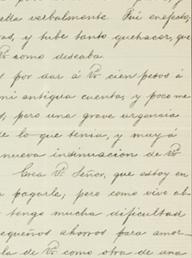 ella verbalmente. Fui en efecto,
ad, y tube tanto quehacer, que
Vo como deseaba.
por dar á Vo cien pesos á
mi antigua cuenta, y poco me
, pero una grave urgencia
de lo que tenia, y muy á
nueva insinuacion de Vo
Crea Vo, Señor, que estoy en
pagarle; pero como vivo ab-
tengo mucha dificultad
equeños ahorros para amor-
la de Vo como otra de una